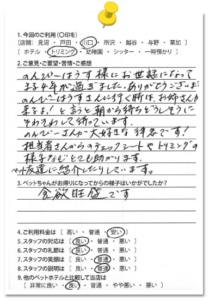 1. 今回のご利用(○印を)
(店舗: 見沼 ・ 戸田 ・ 川口 ・ 所沢 ・ 越谷 ・ 与野 ・ 草加 )
( ホテル ・ トリミング ・ 幼稚園 ・ シッター ・ 一時預かり )
2. ご意見・ご要望・苦情・ご感想
のんびーはうす様にお世話になって
まる
年が過ぎました。ありがとうございます
のんびーはうすさんに行く時は、お姉さんが
来るよ!と言うと朝から待ちどうしそうに
そわそわして待っています。
のんびーさんが大好きな
です!
担当者さんからのチェックシートやトリミングの
様子などとても助かります。
ペット友達に紹介したりしています。
3. ペットちゃんがお戻りになってからの様子はいかがでしたか?
食欲旺盛です
4. ご利用料金は ( 高い ・ 普通 ・ 安い )
5. スタッフの対応は ( 良い ・ 普通 ・ 悪い )
6. スタッフの礼節は ( 良い ・ 普通 ・ 悪い )
7. スタッフの笑顔は ( 良い ・ 普通 ・ 悪い )
8. スタッフの説明は ( 良い ・ 普通 ・ 悪い )
9. 他のペットホテルと比較して当店は
( 非常に良い ・ 良い ・ 普通 ・ やや悪い ・ 悪い )